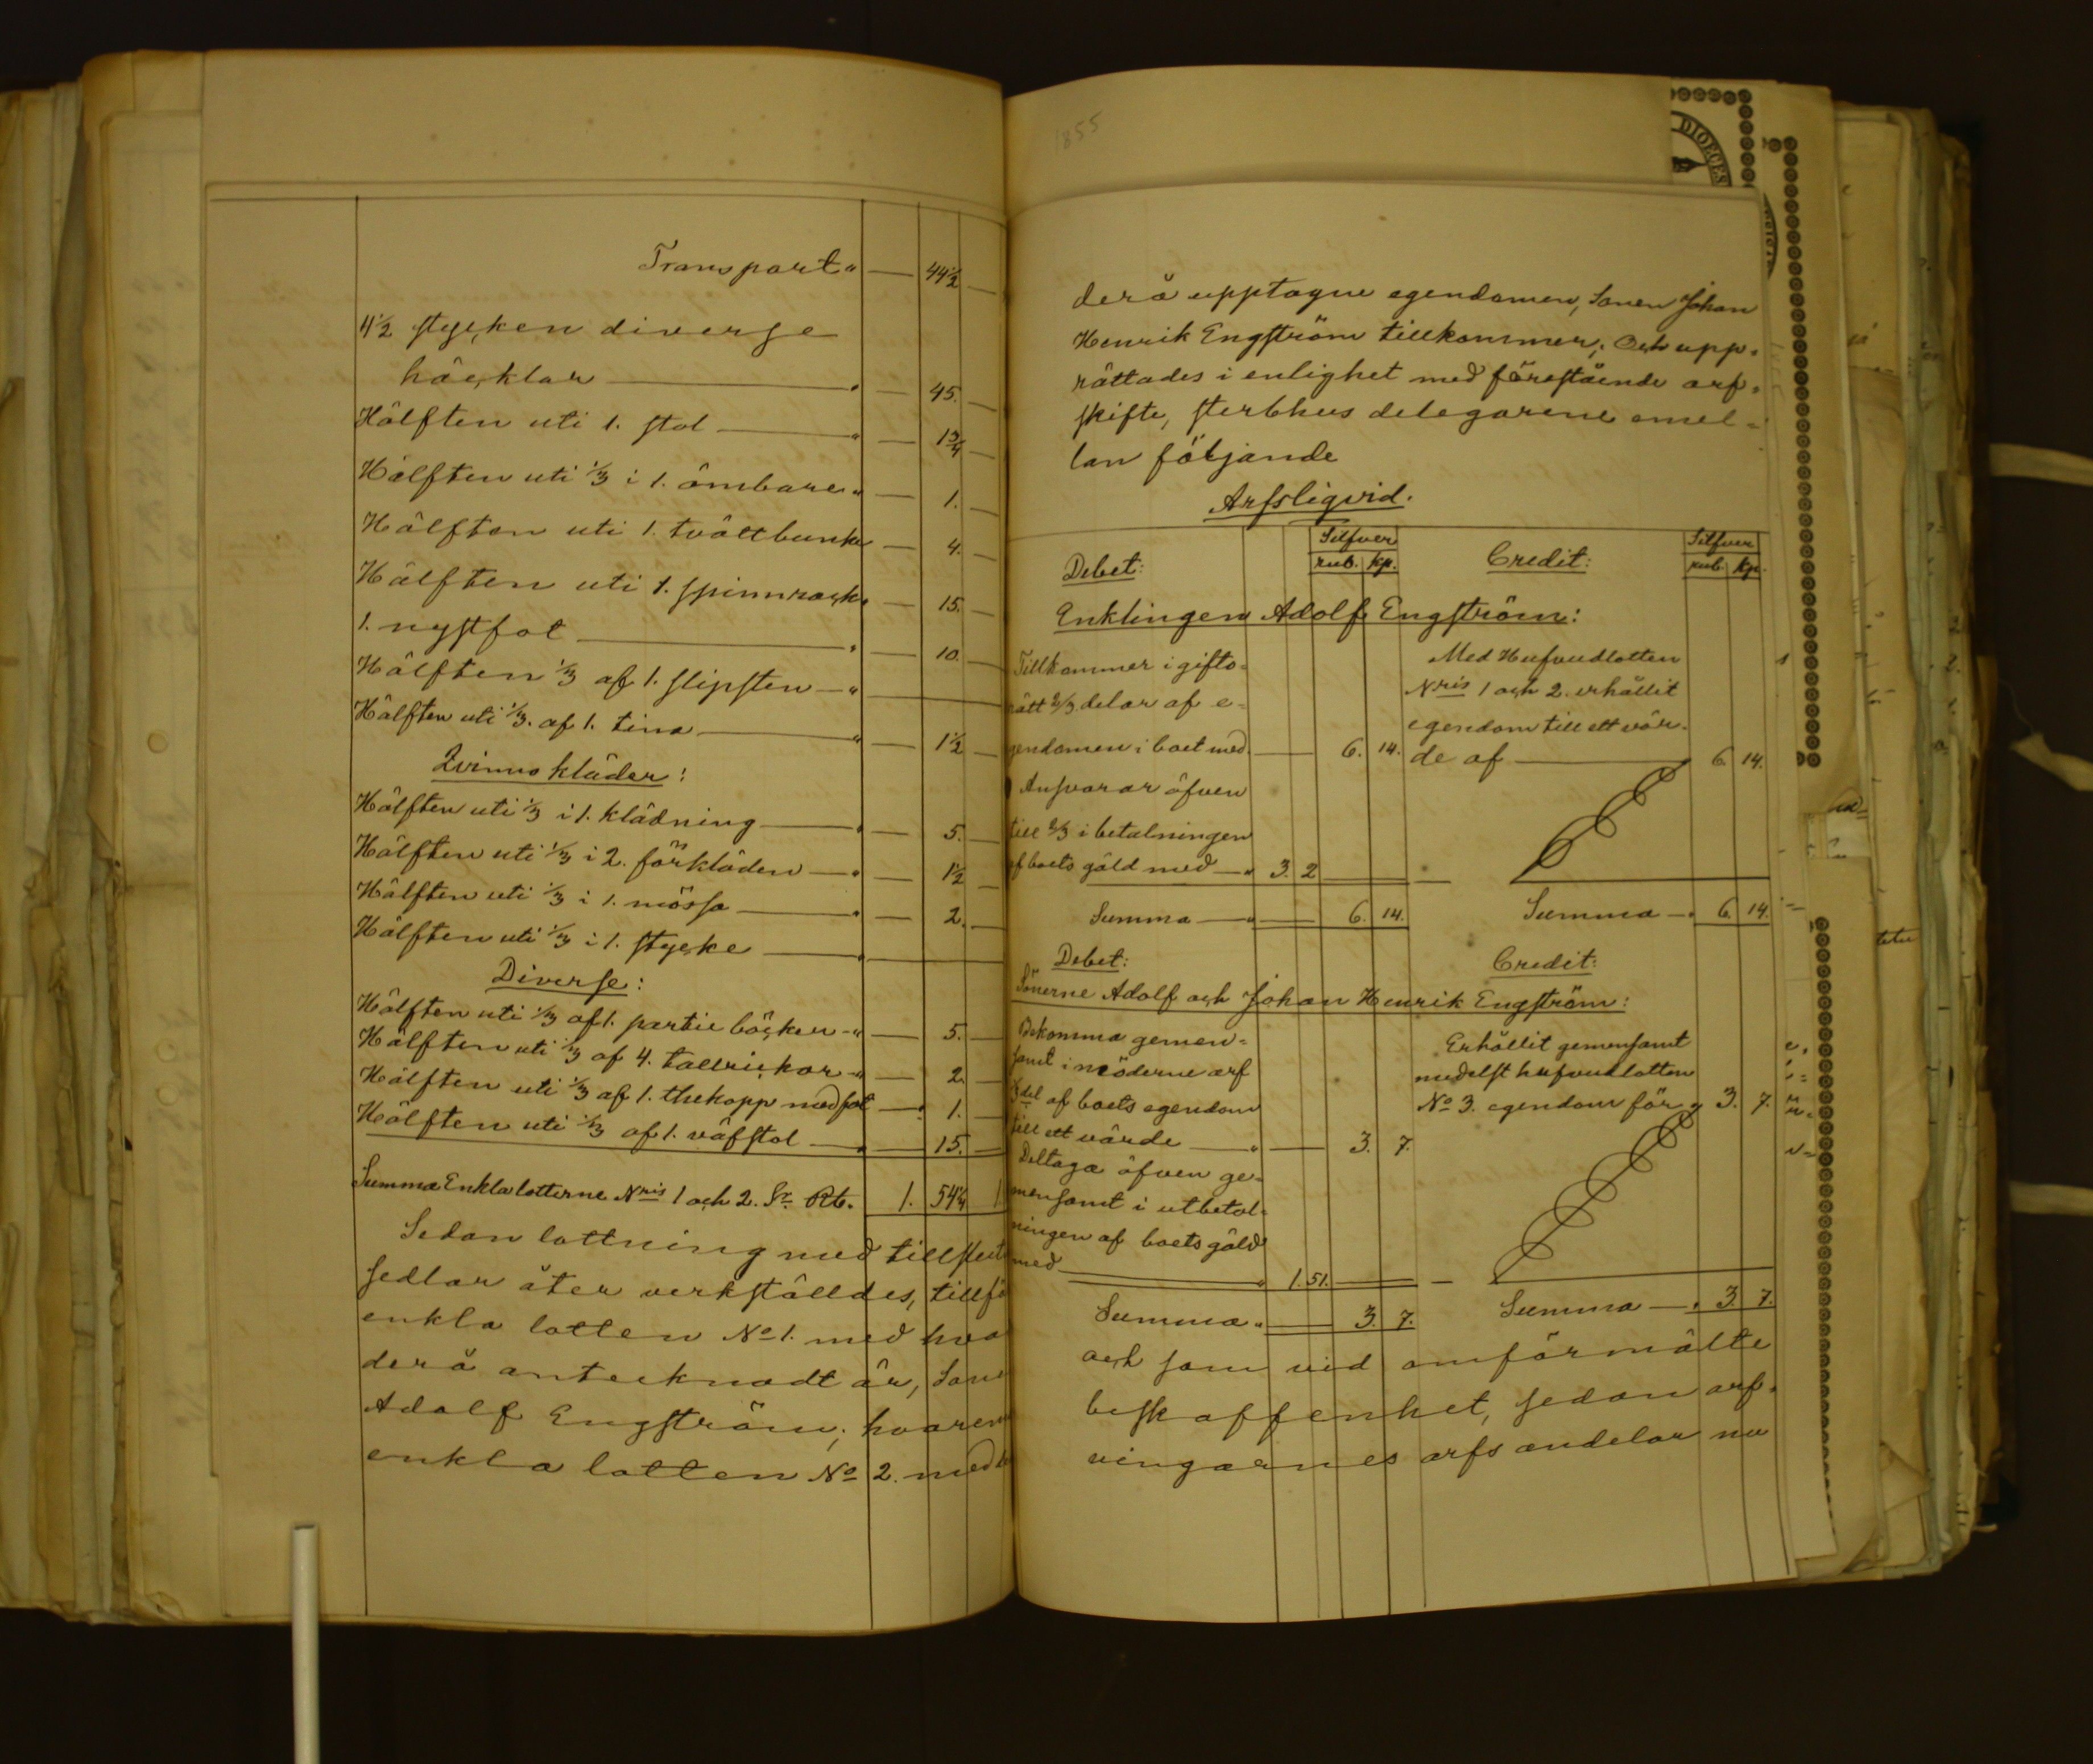 Transport " — 44 1/2 —
4 1/2 stycken diverse
häcklor — " — 45. —
Hälften uti 1. stol — " — 1 3/4 —
Hälften uti 1/3 i 1. ämbare " — 1. —
Hälften uti 1. tvättbunke — 4. —
Hälften uti 1. spinnrock " — 15. —
1. nystfot — " — 10. —
Hälften 1/3 af 1. slipsten — " —
Hälften uti 1/3. af 1. tina — " — 1 1/2 —
Qvinnokläder:
Hälften uti 1/3 i 1. klädning — " — 5. —
Hälften uti 1/3 i 2. förkläden — " — 1 1/2 —
Hälften uti 1/3 i 1. mössa — " — 2. —
Hälften uti 1/3 i 1. stycke — " —
Diverse:
Hälften uti 1/3 af 1. partie böcker — " — 5. —
Hälften uti 1/3 af 4. tallrickar — " — 2. —
Hälften uti 1/3 af 1. thekopp med fat — 1. —
Hälften uti 1/3 af 1. väfstol — " — 15. —
Summa Enkla lotterne Nris 1 och 2. Sr Rb. 1. 54 1/4 1
Sedan lottning med tillslut
sedlar åter verkställdes, tillfö
enkla lotten No 1. med hva
derå antecknadt är, Sone
Adolf Engström; hvarem
enkla lotten No 2. med
1855
DIOECES
derå upptagne egendomen, Sonen Johan
Henrik Engström tillkommer; Och upp-
rättades i enlighet med förestående arf-
skifte, sterbhus delegarene emel-
lan följande
Arfsliqvid.
Debet: Silfver rub. kp. Credit: Silfver rub. kp.
Enklingen Adolf Engström:
Tillkommer i gifto-
rätt 2/3 delar af e-
gendomen i boet med — 6. 14.
Ansvarar öfven
till 2/3 i betalningen
af boets gäld med — " 3. 2
Summa — " — 6. 14.
Med Hufvudlotten
Nris 1 och 2. erhållit
egendom till ett vär-
de af — " 6. 14.
Summa — " 6. 14.
Debet: Credit:
Sönerne Adolf och Johan Henrik Engström:
Bekomma gemen-
samt i möderne arf
1/3 del af boets egendom
till ett värde — " — 3. 7.
Deltaga öfven ge-
mensamt i utbetal-
ningen af boets gäld
med — " 1. 51.
Summa " — 3. 7.
Erhållit gemensamt
medelst hufvudlotten
No 3. egendom för " 3. 7.
Summa — " 3. 7.
och som vid omförmälte
beskaffenhet, sedan arf-
vingarnes arfs andelar nu